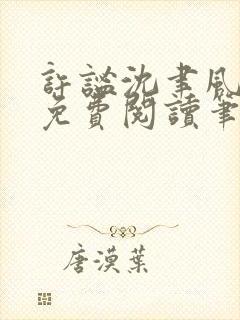 許謐沈聿風
免費閱讀筆
唐漠葉